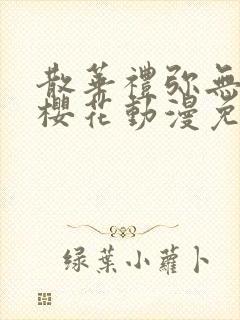 散華禮弥無
櫻花動漫免
绿葉小蘿卜